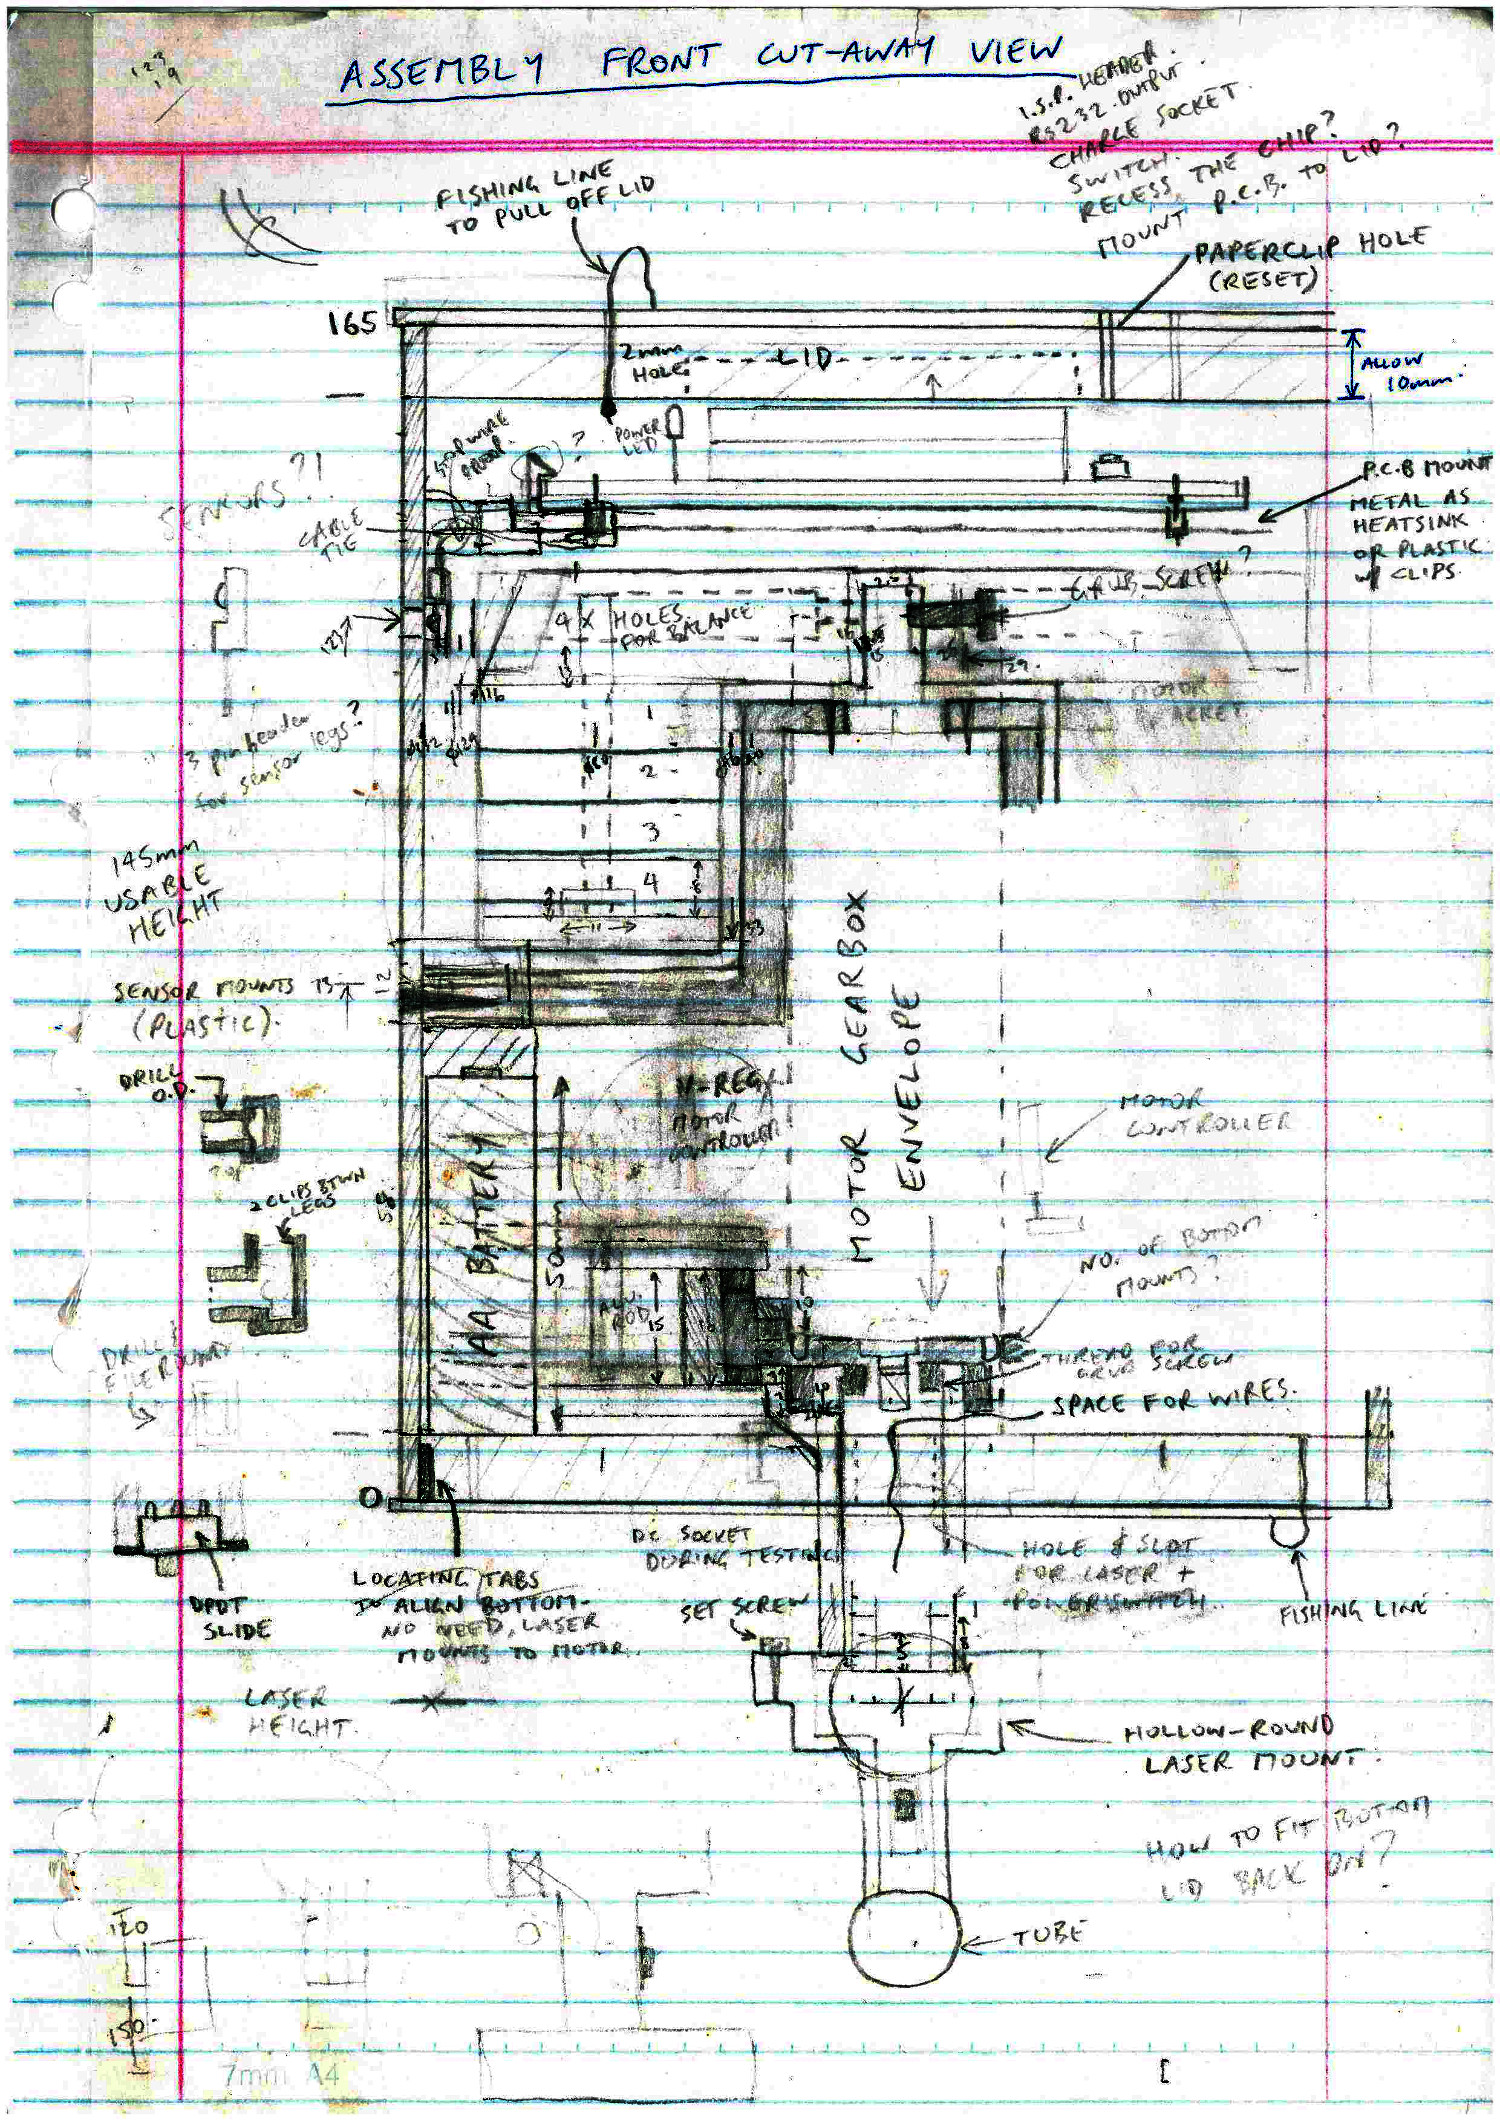 123
19
ASSEMBLY FRONT CUT-AWAY VIEW
I.S.P. HEADER.
RS232 OUTPUT.
CHARGE SOCKET.
SWITCH.
RECESS THE CHIP?
MOUNT P.C.B. TO LID?
FISHING LINE
TO PULL OFF LID
PAPERCLIP HOLE
(RESET)
165
2mm
HOLE
LID
ALLOW
10mm.
POWER
LED
STOP WIRE
?
SENSORS?!
CABLE
TIE
P.C.B MOUNT
METAL AS
HEATSINK
OR PLASTIC
W/ CLIPS.
GRUB SCREW?
4X HOLES
FOR BALANCE
123
29.
116
MOTOR
BRACKET
3 pin header
for sensor legs?
1
2
3
4
11
33
145mm
USABLE
HEIGHT
SENSOR MOUNTS
(PLASTIC).
73
12
MOTOR GEARBOX
ENVELOPE
DRILL
O.D.
V-REG/
MOTOR
CONTROLLER
MOTOR
CONTROLLER
2 CLIPS BTWN
LEGS
58
AA BATTERY
50mm
NO. OF BOTTOM
MOUNTS?
ALU.
ROD
15
10
DRILL &
FILE
THREAD FOR
GRUB SCREW
SPACE FOR WIRES.
0
DPDT
SLIDE
LOCATING TABS
TO ALIGN BOTTOM.
NO NEED, LASER
MOUNTS TO MOTOR.
DC SOCKET
DURING TESTING
SET SCREW
HOLE & SLOT
FOR LASER +
POWER SWITCH.
FISHING LINE
LASER
HEIGHT.
HOLLOW-ROUND
LASER MOUNT.
HOW TO FIT BOTTOM
LID BACK ON?
TUBE
120
150
7mm A4